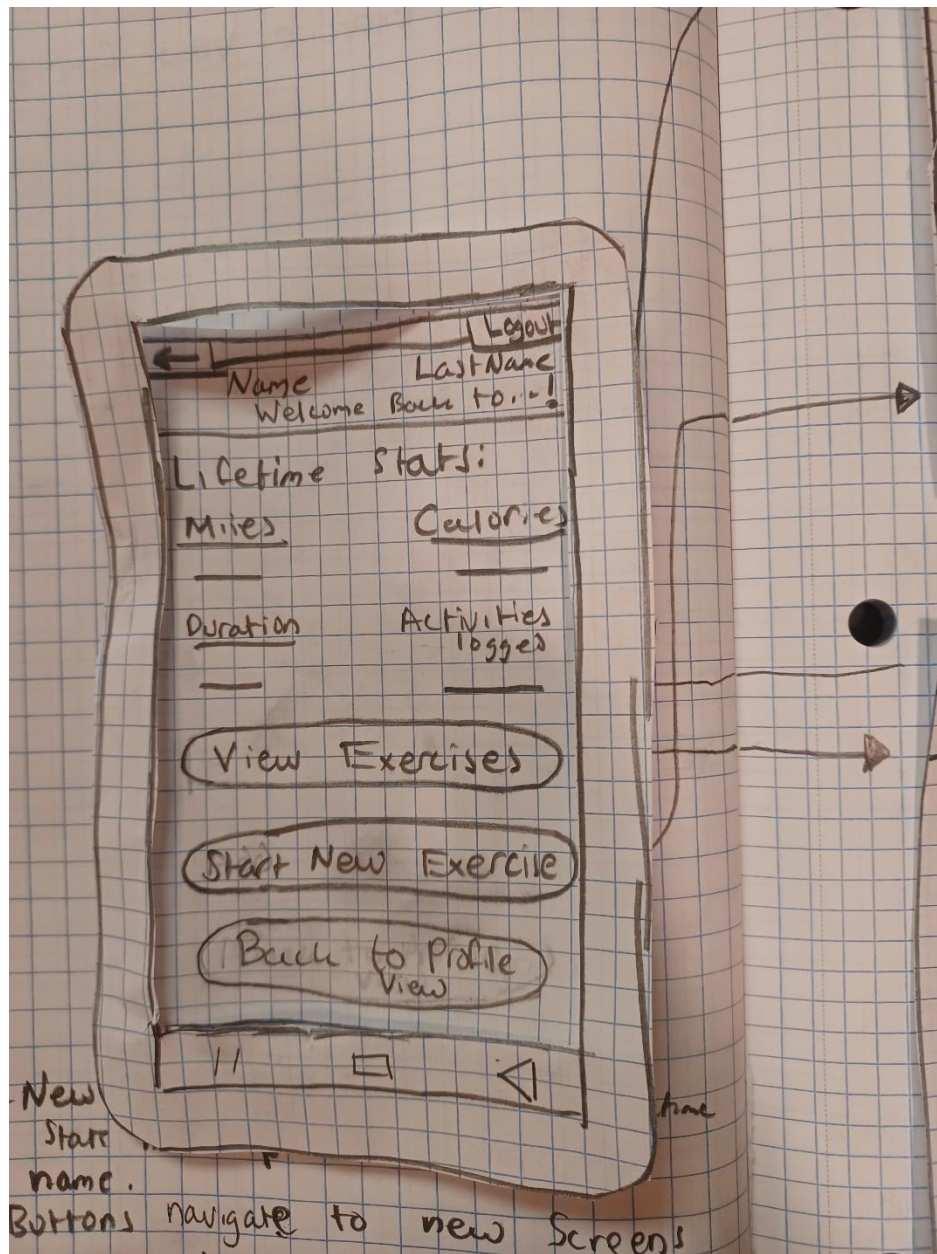 Logout
Name LastName
Welcome Back to...!
Lifetime Stats:
Miles Calories
Duration Activities
logged
View Exercises
Start New Exercise
Back to Profile
View
New
State
name.
Buttons navigate to new Screens